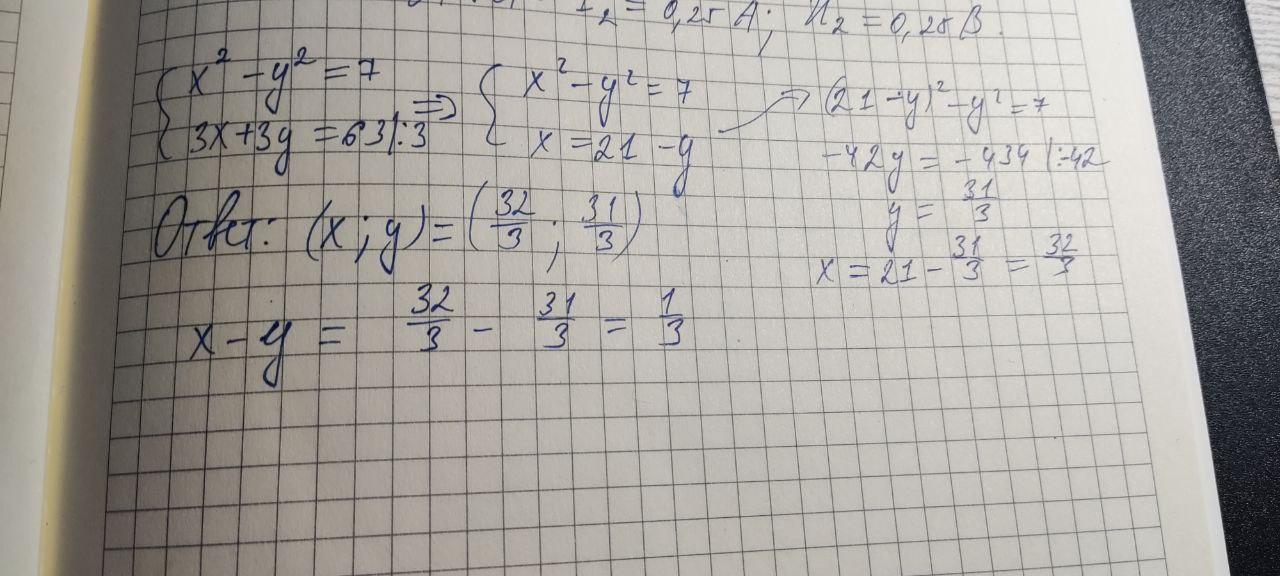 I₂ = 0,25 A; U₂ = 0,25 В.
{ x² - y² = 7
3x + 3y = 63 |:3
⇒ { x² - y² = 7
x = 21 - y
→ (21 - y)² - y² = 7
-42y = -434 |:-42
y = 31/3
x = 21 - 31/3 = 32/3
Ответ: (x ; y) = (32/3 ; 31/3)
x - y = 32/3 - 31/3 = 1/3